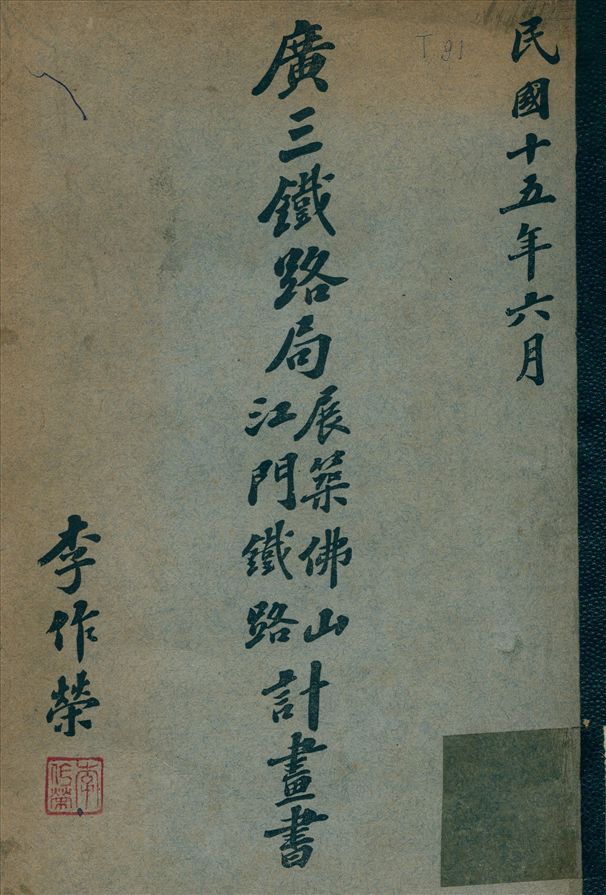 民國十五年六月
T 91
廣三鐵路局展築佛山江門鐵路計畫書
李作榮
李作榮